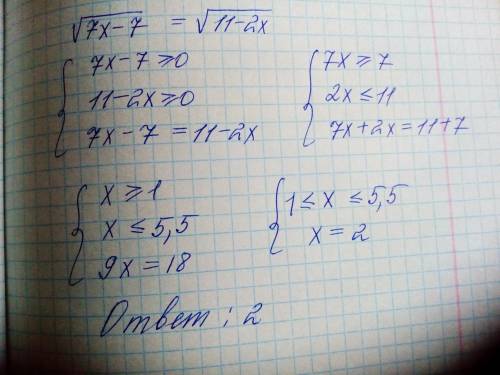 √7x-7 = √11-2x
{ 7x-7 ≥0
11-2x ≥0
7x-7 = 11-2x
{ 7x ≥ 7
2x ≤ 11
7x+2x = 11+7
{ x ≥ 1
x ≤ 5,5
9x = 18
{ 1 ≤ x ≤ 5,5
x = 2
Ответ : 2